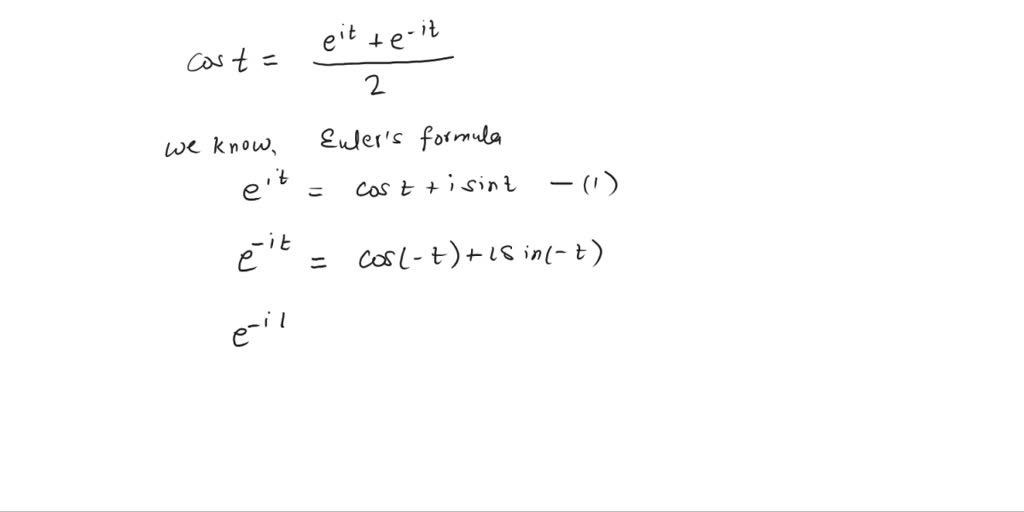 cos t = (e^{it} + e^{-it}) / 2
we know, Euler's formula
e^{it} = cos t + i sint — (1)
e^{-it} = cos(-t) + i sin(-t)
e^{-i